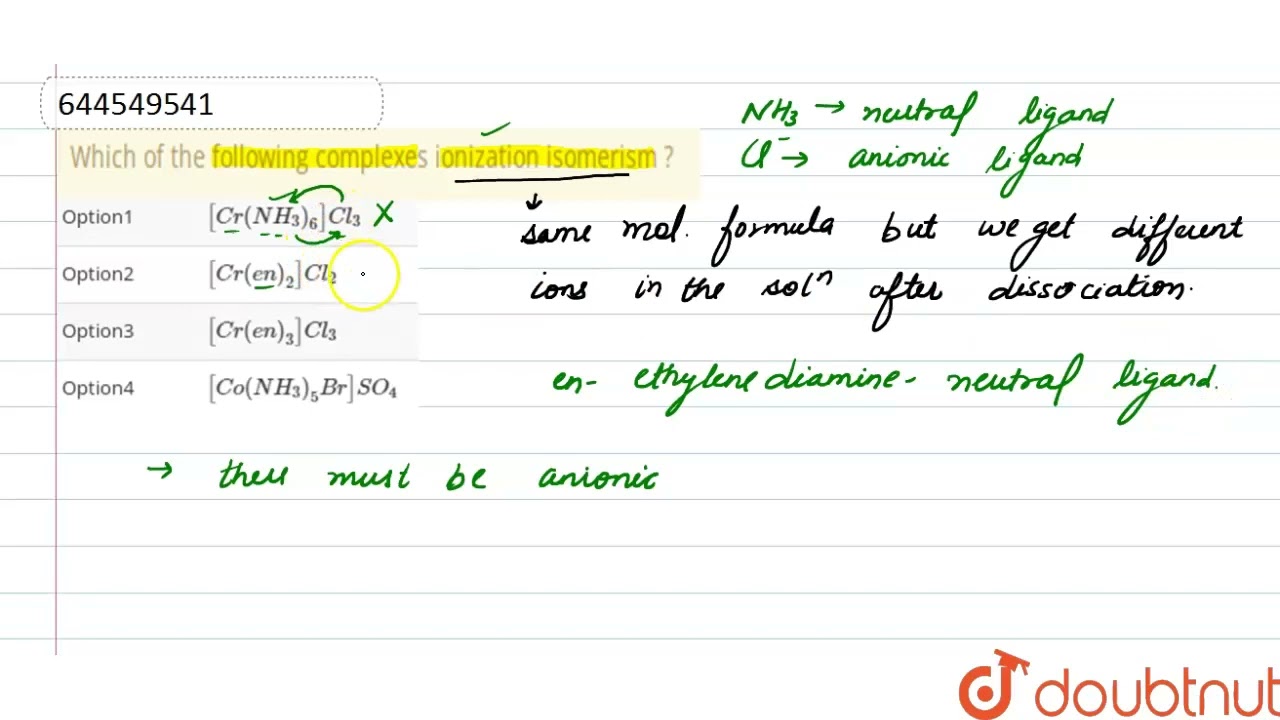 644549541
NH₃ → neutral ligand
Cl⁻ → anionic ligand
Which of the following complexes ionization isomerism ?
Option1 [Cr(NH₃)₆]Cl₃ X
↓
same mol. formula but we get different
Option2 [Cr(en)₂]Cl₂
ions in the solⁿ after dissociation.
Option3 [Cr(en)₃]Cl₃
Option4 [Co(NH₃)₅Br]SO₄
en- ethylene diamine - neutral ligand.
→ there must be anionic
doubtnut